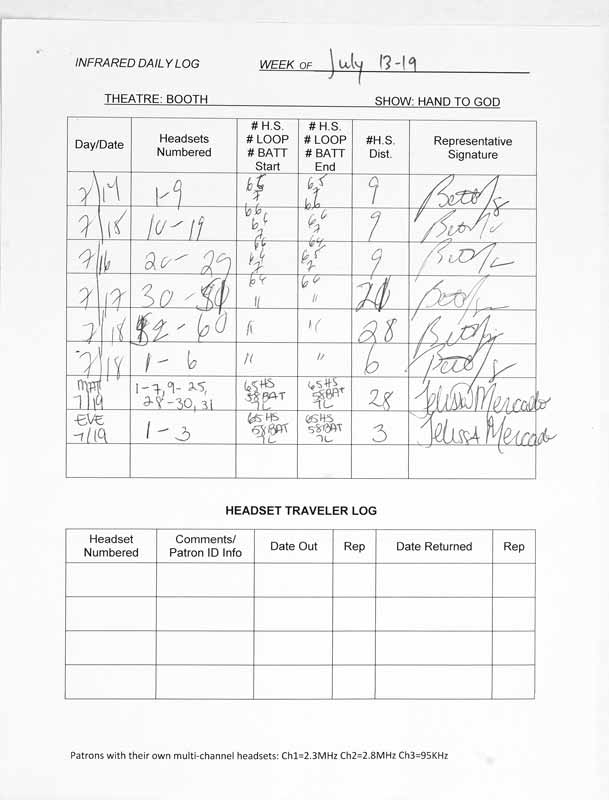 INFRARED DAILY LOG WEEK OF July 13-19
THEATRE: BOOTH SHOW: HAND TO GOD
Day/Date Headsets Numbered # H.S. # LOOP # BATT Start # H.S. # LOOP # BATT End #H.S. Dist. Representative Signature
7/14 1-9 65 7 66 65 7 66 9
7/15 10-19 9
7/16 20-29 9
7/17 30- " "
7/18 - 60 " " 28
7/18 1-6 " " 6
MAT 7/19 1-7, 9-25, 28-30, 31 65HS 58BAT 7L 65HS 58BAT 7L 28 Jelissa Mercado
EVE 7/19 1-3 65HS 58BAT 7L 65HS 58BAT 7L 3 Jelissa Mercado
HEADSET TRAVELER LOG
Headset Numbered Comments/ Patron ID Info Date Out Rep Date Returned Rep
Patrons with their own multi-channel headsets: Ch1=2.3MHz Ch2=2.8MHz Ch3=95KHz